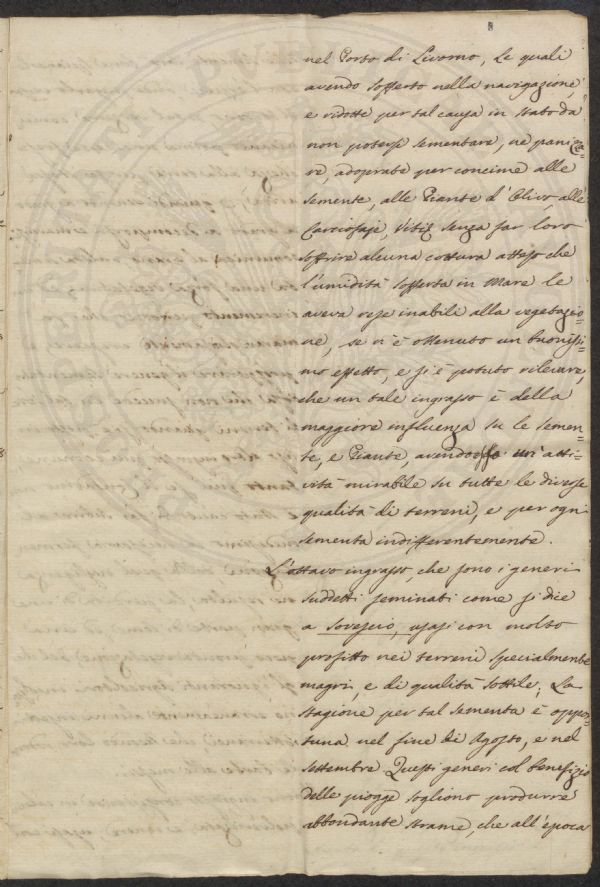 nel Porto di Livorno, Le quali
avendo sofferto nella navigazione,
e ridotte per tal causa in stato da
non potersi sementare, ne panizza=
re, adoprate per concime alle
semente, alle Piante d'Olivo, alle
Carciofaje, Vitiz senza far loro
soffrire alcuna cottura atteso che
l'umidità sofferta in Mare le
aveva rese inabili alla vegetazio=
ne, se n'è ottenuto un buonissi=
mo effetto, e si è potuto rilevare,
che un tale ingrasso è della
maggiore influenza su le semen=
te, e Piante, avendo un'atti=
vità mirabile su tutte le diverse
qualità di terreni, e per ogni
sementa indifferentemente.
L'ottavo ingrasso, che sono i generi
suddetti seminati come si dice
a sovescio, usasi con molto
profitto nei terreni specialmente
magri, e di qualità sottile. La
stagione per tal sementa è oppor=
tuna nel fine di Agosto, e nel
Settembre. Questi generi col benefizio
delle piogge sogliono produrre
abbondante strame, che all'epoca